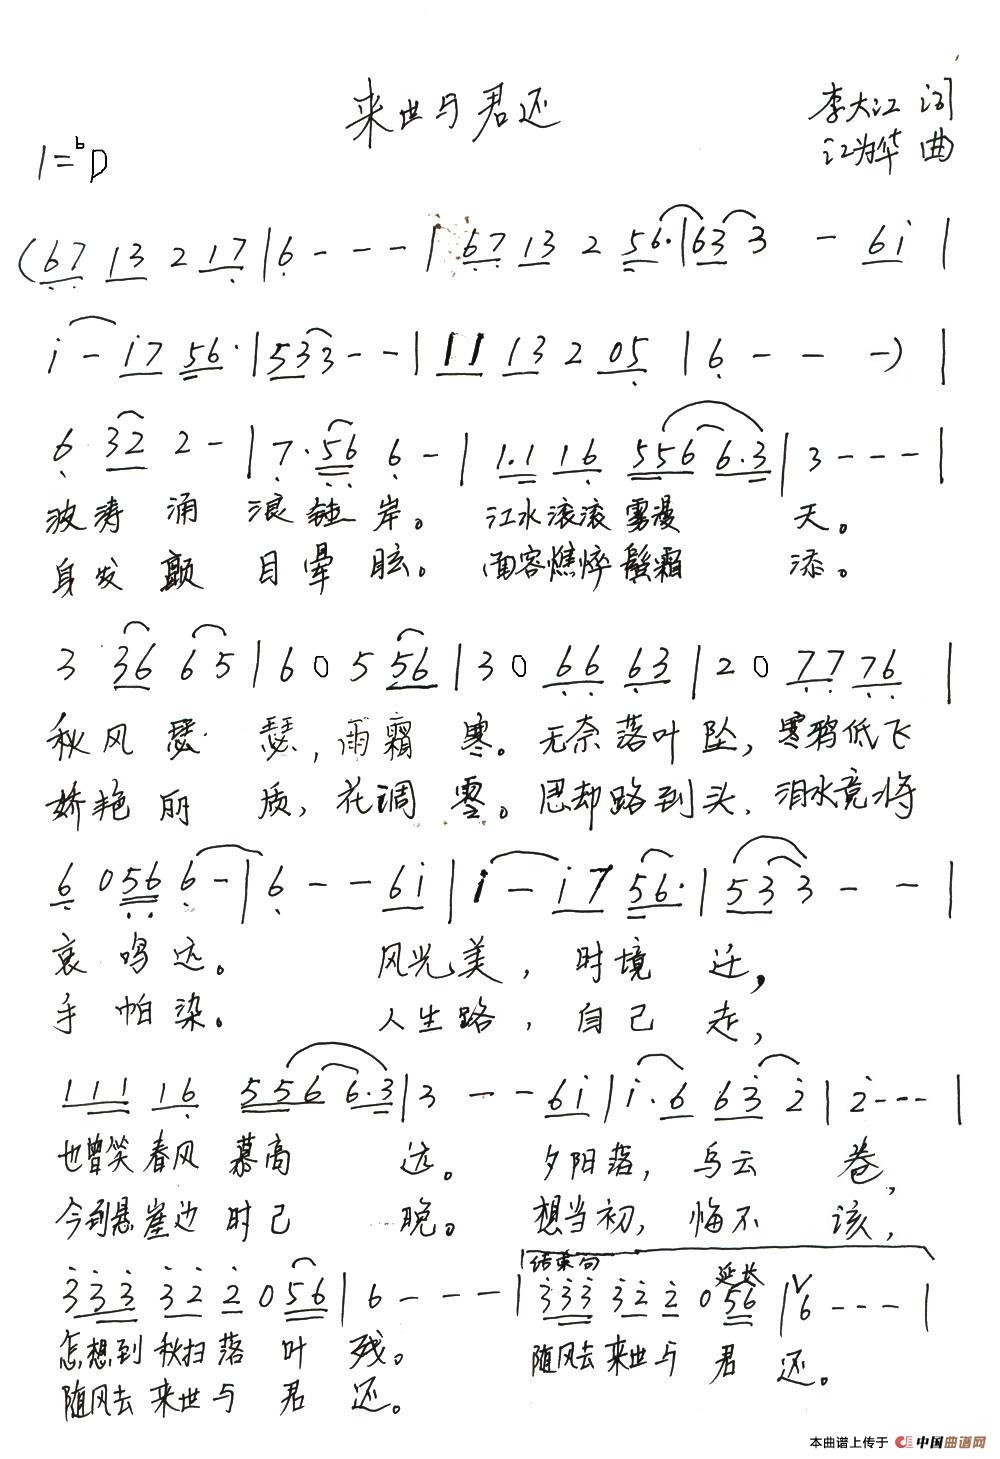 来世与君还
李大江 词
江为华 曲
1=bD
(67 13 2 17 | 6 - - - | 67 13 2 56· | 63 3 - 6i |
i - i7 56· | 533 - - | 11 13 2 05 | 6 - - -) |
6 32 2 - | 7·56 6 - | 1.1 16 556 6·3 | 3 - - - |
波涛 涌 浪 岸。 江水滚滚雾漫 天。
身发 颤 目晕 眩。 面容憔悴鬓霜 添。
3 36 65 | 6 0 5 56 | 3 0 66 63 | 2 0 77 76 |
秋风瑟 瑟,雨霜 寒。无奈落叶 坠,寒鸦低飞
娇艳丽 质,花凋 零。思却路到头,泪水竟将
6 056 6 - | 6 - - 6i | i - i7 56· | 533 - - |
哀 鸣远。 风光美,时境 迁,
手 帕染。 人生路,自己 走,
111 16 556 6·3 | 3 - - 6i | i·6 63 2 | 2 - - - |
也曾笑春风 慕高 远。 夕阳落,乌云 卷,
今到悬崖边 时已 晚。 想当初,悔不 该,
结束句
延长
333 32 2 0 56 | 6 - - - | 333 32 2 0 56 | V 6 - - - |
怎想到 秋扫落 叶 残。 随风去 来世与 君 还。
随风去 来世与 君 还。
本曲谱上传于 中国曲谱网